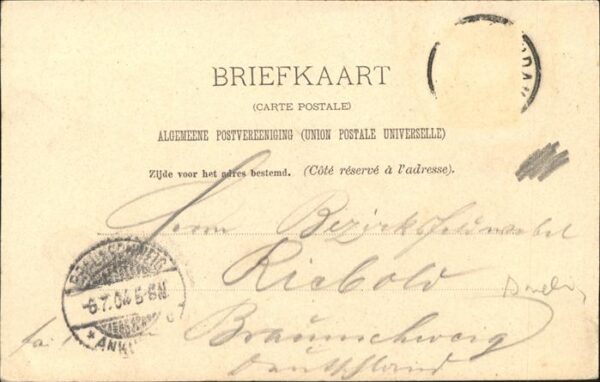 BRIEFKAART
(CARTE POSTALE)
ALGEMEENE POSTVEREENIGING (UNION POSTALE UNIVERSELLE)
Zijde voor het adres bestemd. (Côté réservé à l'adresse).
Herrn Bezirksfeldwebel
Riebold
Braunschweig
Deutschland
BRAUNSCHWEIG
6.7.04 5-6N
* ANK